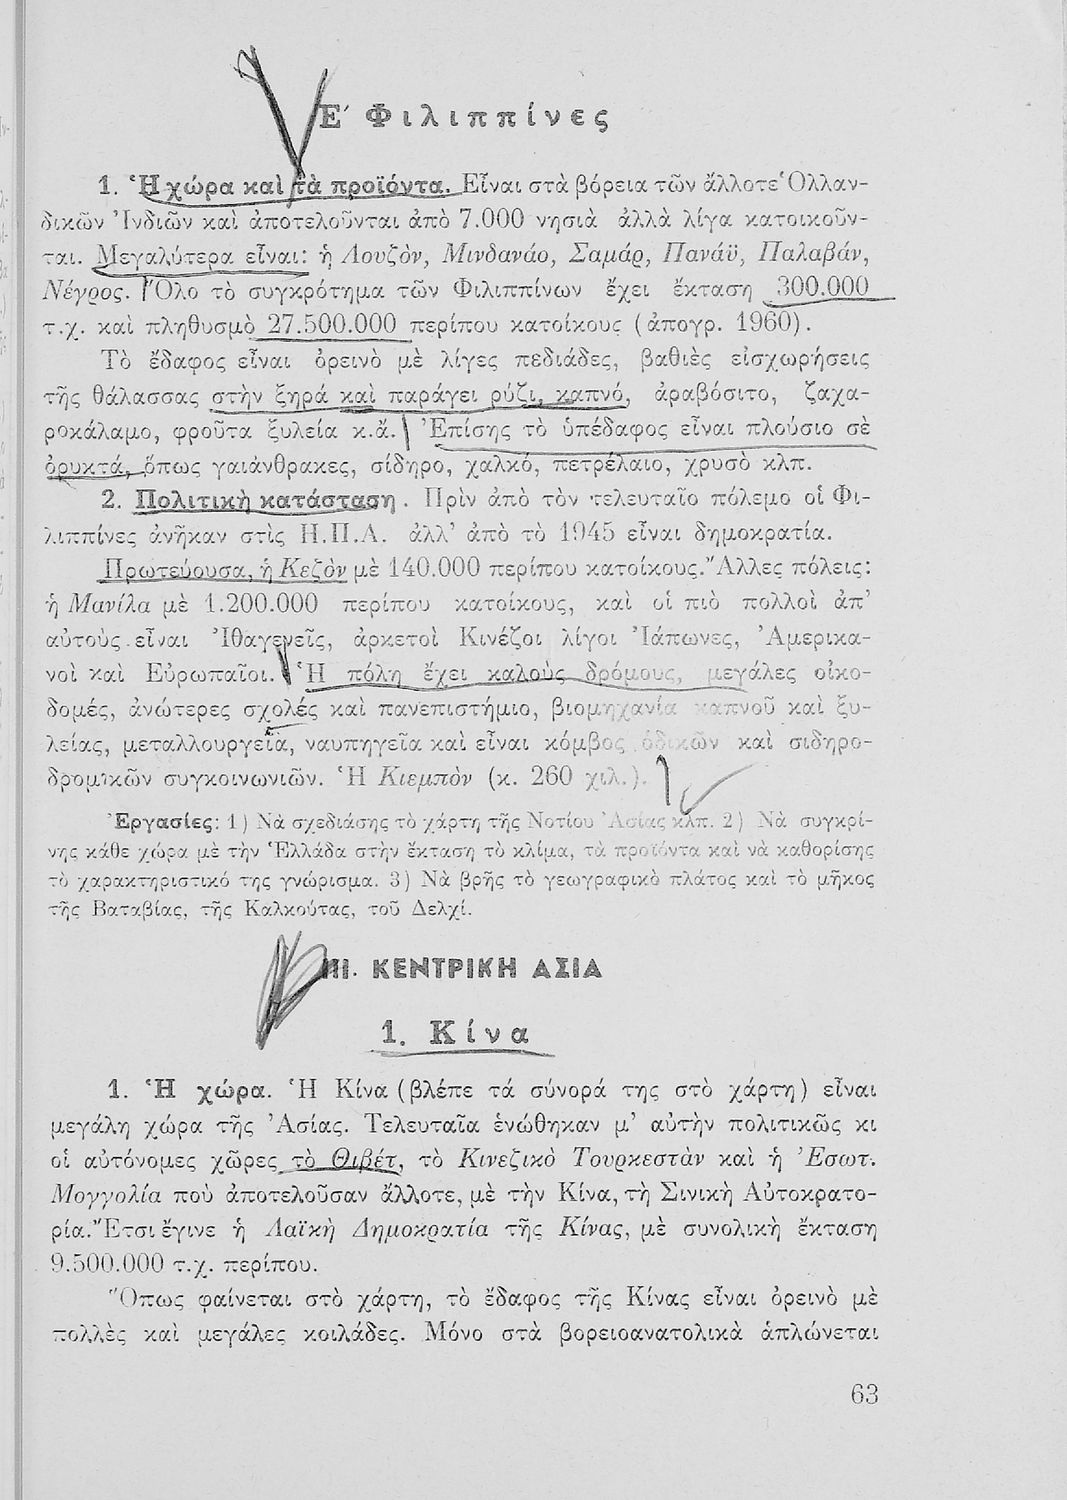 Ε΄ Φιλιππίνες
1. Ἡ χώρα καὶ τὰ προϊόντα. Εἶναι στὰ βόρεια τῶν ἄλλοτε Ὁλλαν-
δικῶν Ἰνδιῶν καὶ ἀποτελοῦνται ἀπὸ 7.000 νησιὰ ἀλλὰ λίγα κατοικοῦν-
ται. Μεγαλύτερα εἶναι: ἡ Λουζὸν, Μινδανάο, Σαμάρ, Πανάϋ, Παλαβάν,
Νέγρος. Ὅλο τὸ συγκρότημα τῶν Φιλιππίνων ἔχει ἔκταση 300.000
τ.χ. καὶ πληθυσμὸ 27.500.000 περίπου κατοίκους (ἀπογρ. 1960).
Τὸ ἔδαφος εἶναι ὀρεινὸ μὲ λίγες πεδιάδες, βαθιὲς εἰσχωρήσεις
τῆς θάλασσας στὴν ξηρά καὶ παράγει ρύζι, καπνό, ἀραβόσιτο, ζαχα-
ροκάλαμο, φροῦτα ξυλεία κ.ἄ. Ἐπίσης τὸ ὑπέδαφος εἶναι πλούσιο σὲ
ὀρυκτά, ὅπως γαιάνθρακες, σίδηρο, χαλκό, πετρέλαιο, χρυσὸ κλπ.
2. Πολιτικὴ κατάσταση. Πρὶν ἀπὸ τὸν τελευταῖο πόλεμο οἱ Φι-
λιππίνες ἀνῆκαν στὶς Η.Π.Α. ἀλλ' ἀπὸ τὸ 1945 εἶναι δημοκρατία.
Πρωτεύουσα, ἡ Κεζὸν μὲ 140.000 περίπου κατοίκους. Ἄλλες πόλεις:
ἡ Μανίλα μὲ 1.200.000 περίπου κατοίκους, καὶ οἱ πιὸ πολλοὶ ἀπ'
αὐτοὺς εἶναι Ἰθαγενεῖς, ἀρκετοὶ Κινέζοι λίγοι Ἰάπωνες, Ἀμερικα-
νοὶ καὶ Εὐρωπαῖοι. Ἡ πόλη ἔχει καλοὺς δρόμους, μεγάλες οἰκο-
δομές, ἀνώτερες σχολές καὶ πανεπιστήμιο, βιομηχανία καπνοῦ καὶ ξυ-
λείας, μεταλλουργεῖα, ναυπηγεῖα καὶ εἶναι κόμβος ὁδικῶν καὶ σιδηρο-
δρομικῶν συγκοινωνιῶν. Ἡ Κιεμπὸν (κ. 260 χιλ.).
Ἐργασίες: 1) Νὰ σχεδιάσης τὸ χάρτη τῆς Νοτίου Ἀσίας κλπ. 2) Νὰ συγκρί-
νης κάθε χώρα μὲ τὴν Ἑλλάδα στὴν ἔκταση τὸ κλίμα, τὰ προϊόντα καὶ νὰ καθορίσης
τὸ χαρακτηριστικό της γνώρισμα. 3) Νὰ βρῆς τὸ γεωγραφικὸ πλάτος καὶ τὸ μῆκος
τῆς Βαταβίας, τῆς Καλκούτας, τοῦ Δελχί.
ΙΙΙ. ΚΕΝΤΡΙΚΗ ΑΣΙΑ
1. Κίνα
1. Ἡ χώρα. Ἡ Κίνα (βλέπε τά σύνορά της στὸ χάρτη) εἶναι
μεγάλη χώρα τῆς Ἀσίας. Τελευταῖα ἑνώθηκαν μ' αὐτὴν πολιτικῶς κι
οἱ αὐτόνομες χῶρες τὸ Θιβέτ, τὸ Κινεζικὸ Τουρκεστὰν καὶ ἡ Ἐσωτ.
Μογγολία ποὺ ἀποτελοῦσαν ἄλλοτε, μὲ τὴν Κίνα, τὴ Σινικὴ Αὐτοκρατο-
ρία. Ἔτσι ἔγινε ἡ Λαϊκὴ Δημοκρατία τῆς Κίνας, μὲ συνολικὴ ἔκταση
9.500.000 τ.χ. περίπου.
Ὅπως φαίνεται στὸ χάρτη, τὸ ἔδαφος τῆς Κίνας εἶναι ὀρεινὸ μὲ
πολλὲς καὶ μεγάλες κοιλάδες. Μόνο στὰ βορειοανατολικὰ ἁπλώνεται
63